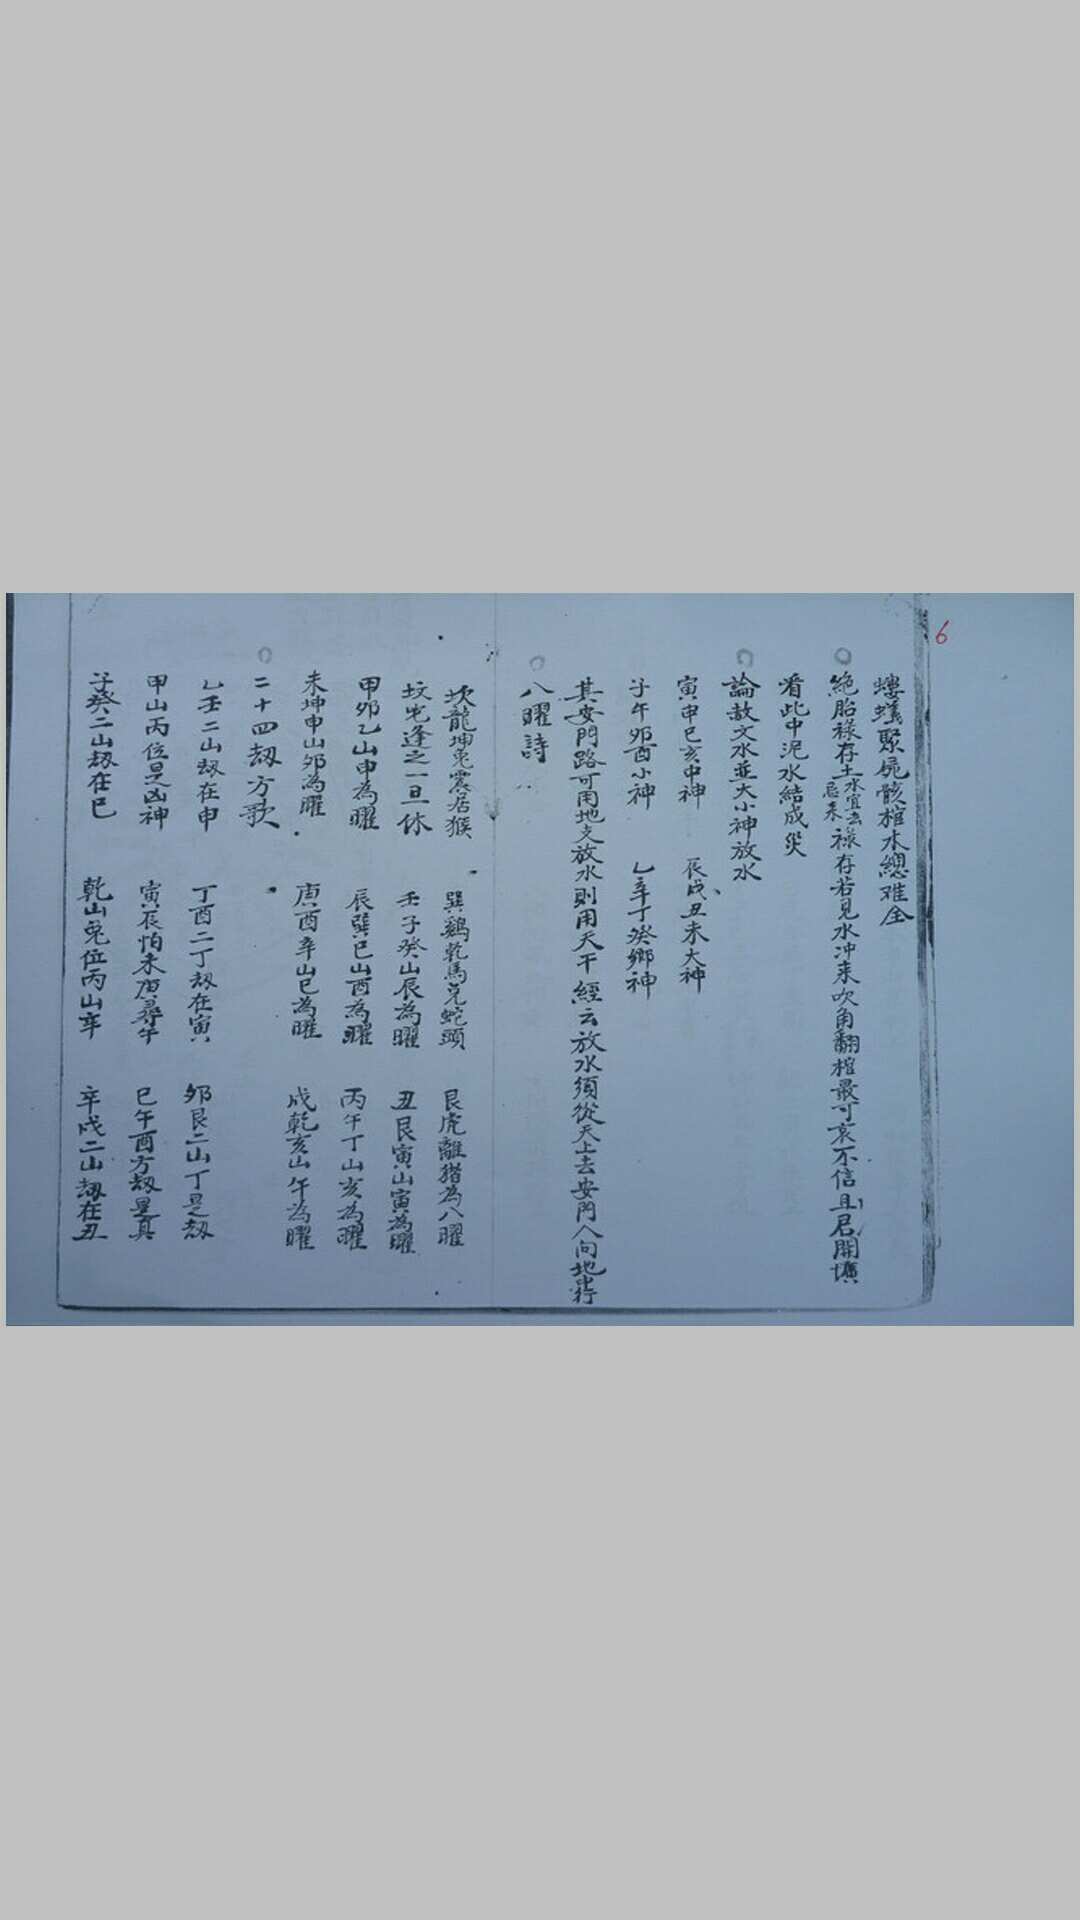 6
螻蟻聚屍骸棺木總难全
絶胎禄存土水宜去忌来禄存若見水冲来吹角翻棺最可哀不信且君開壙
看此中泥水結成災
論赦文水並大小神放水
寅申巳亥中神 辰戌丑未大神
子午夘酉小神 乙辛丁癸鄉神
其安門路可用地支放水則用天干經云放水須從天上去安門人向地中行
八曜詩
坎龍坤兎震居猴 巽鷄乾馬兌蛇頭 艮虎離猪為八曜
坟宅逢之一旦休 壬子癸山辰為曜 丑艮寅山寅為曜
甲夘乙山申為曜 辰巽巳山酉為曜 丙午丁山亥為曜
未坤申山夘為曜 庚酉辛山巳為曜 戌乾亥山午為曜
二十四刼方歌
乙壬二山刼在申 丁酉二丁刼在寅 夘艮二山丁是刼
甲山丙位是凶神 寅辰怕未庚尋午 巳午酉方刼是真
子癸二山刼在巳 乾山兎位丙山辛 辛戌二山刼在丑